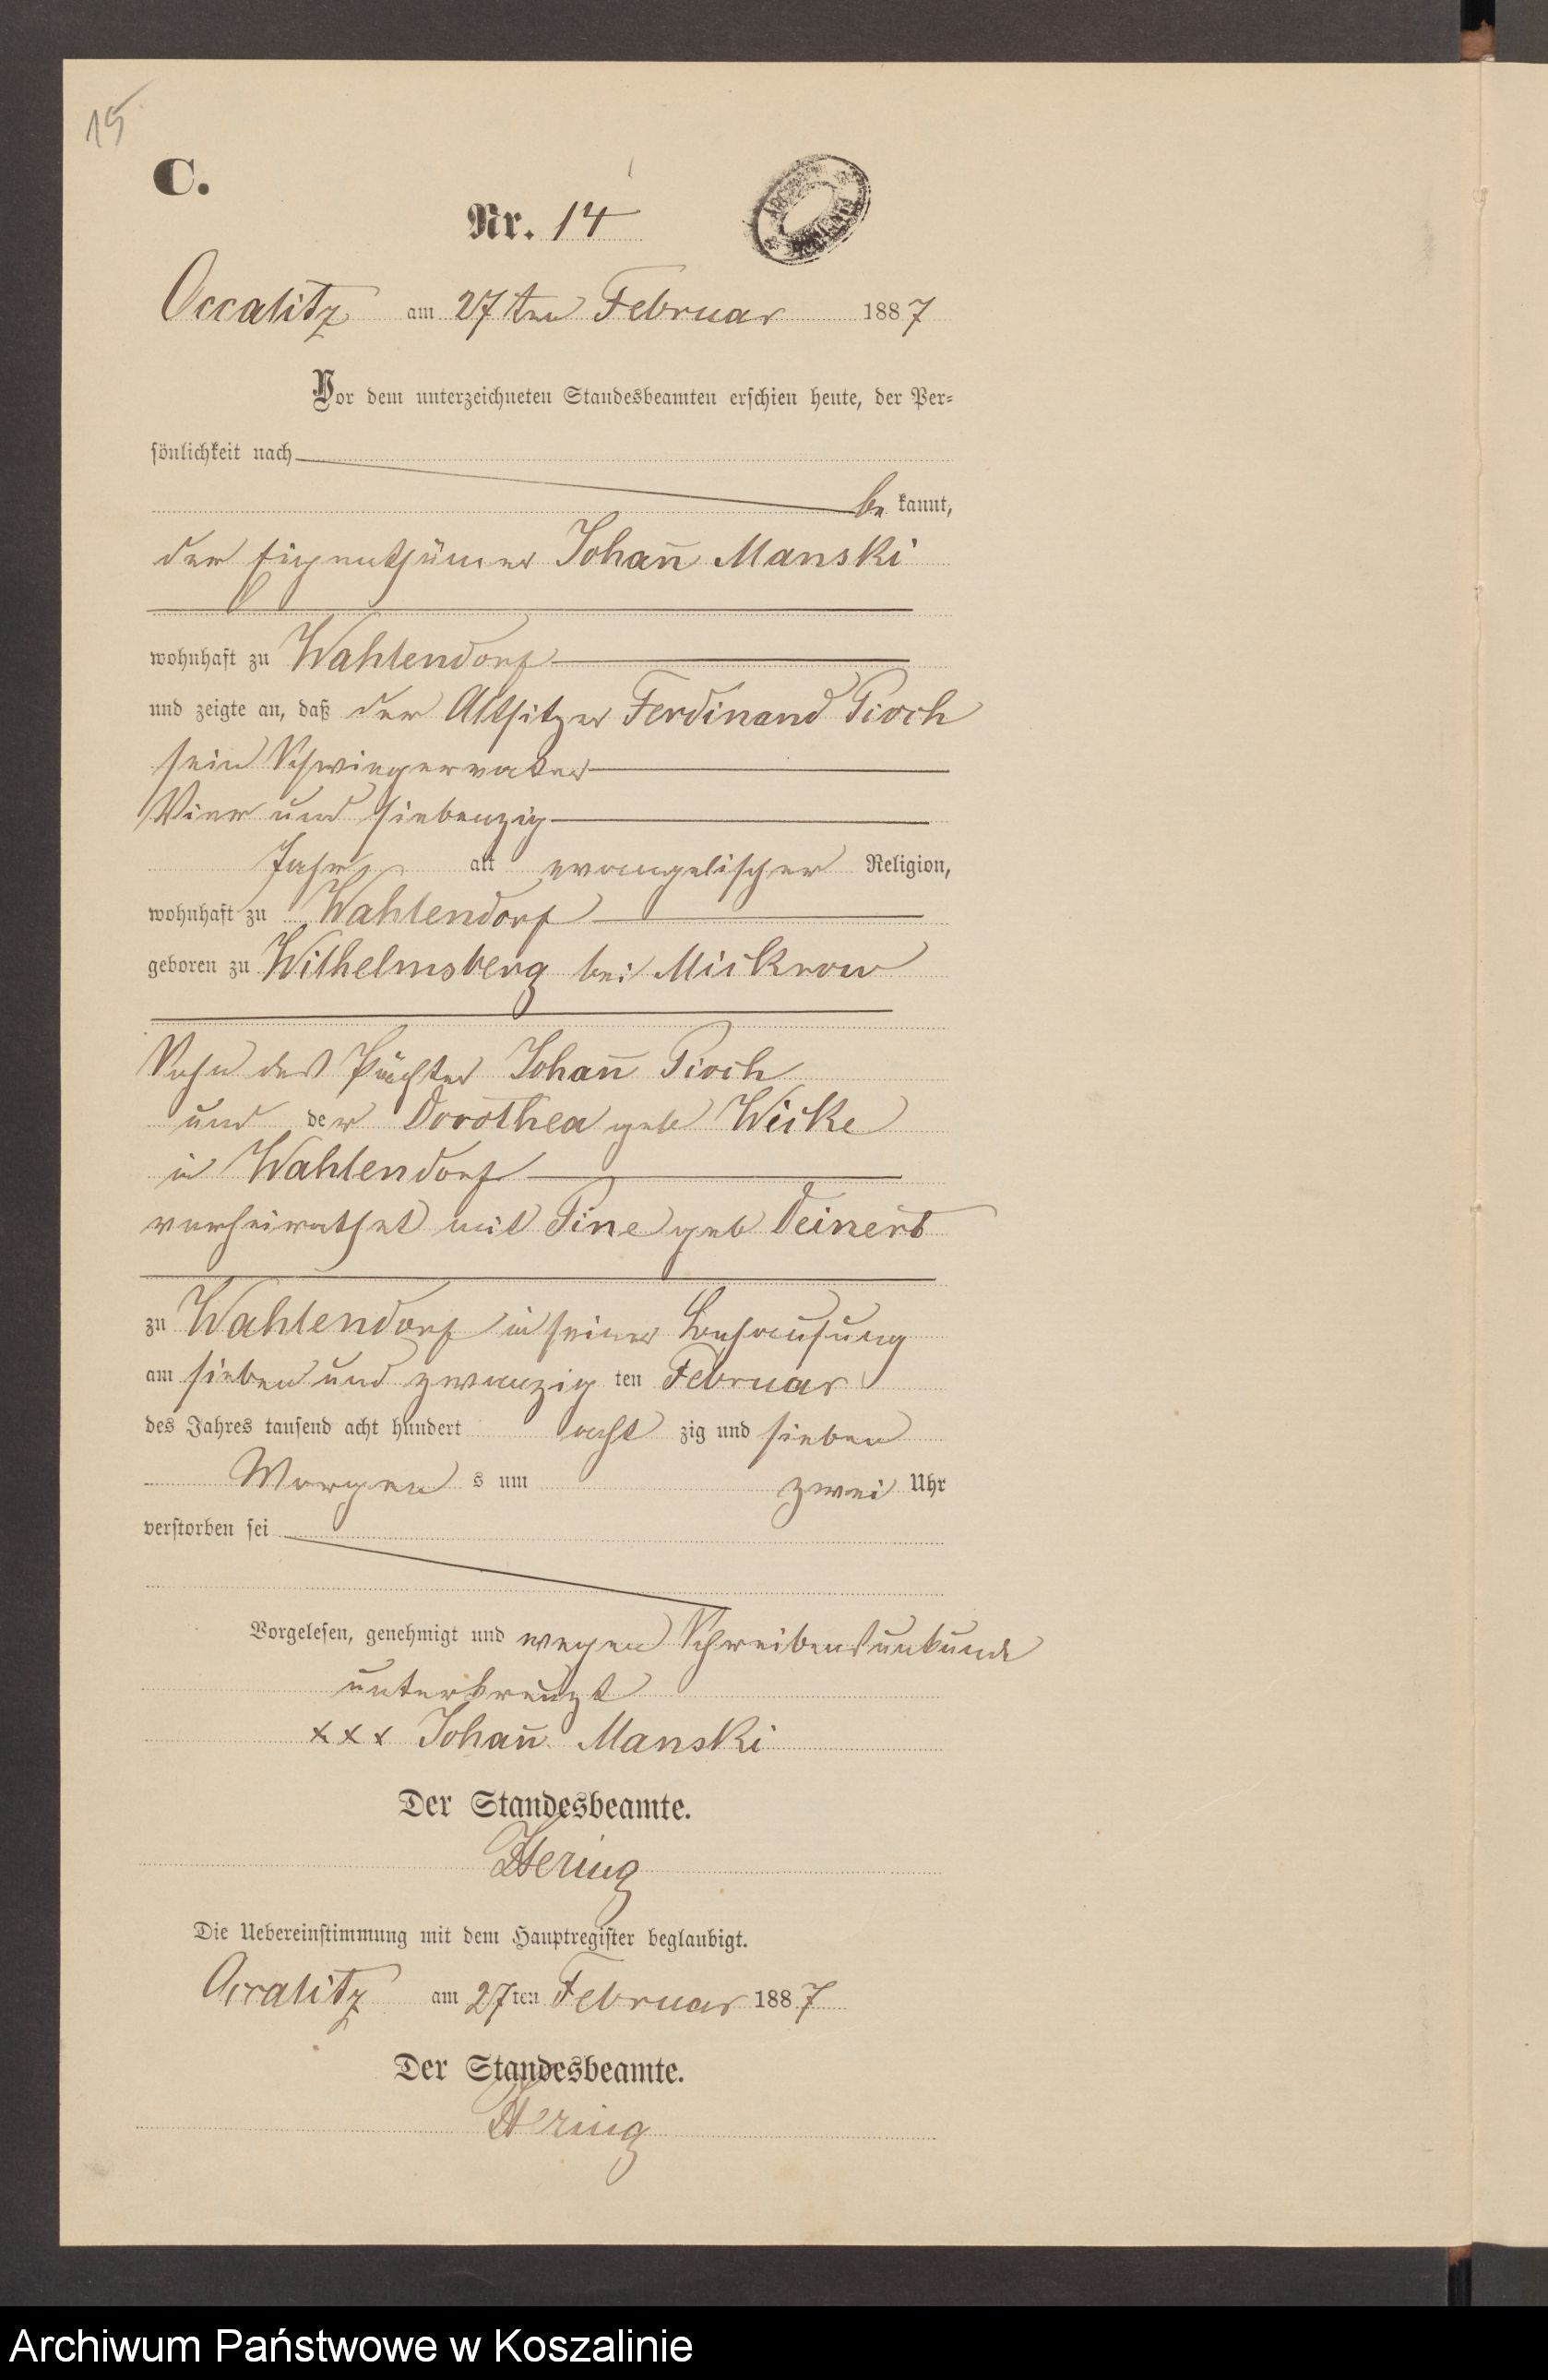 15
C.
Nr. 14
Occalitz am 27ten Februar 1887
Vor dem unterzeichneten Standesbeamten erschien heute, der Per-
sönlichkeit nach
be kannt,
der Eigenthümer Johan̄ Manski
wohnhaft zu Wahlendorf
und zeigte an, daß der Altsitzer Ferdinand Pioch
sein Schwiegervater
Vier und siebenzig
Jahr alt evangelischer Religion,
wohnhaft zu Wahlendorf
geboren zu Wilhelmsberg bei Mickrow
Sohn des Pächter Johan̄ Pioch
und der Dorothea geb Wicke
in Wahlendorf
verheirathet mit Pine geb Deinert
zu Wahlendorf in seiner Behausung
am sieben und zwanzig ten Februar
des Jahres tausend acht hundert acht zig und sieben
Morgen s um zwei Uhr
verstorben sei
Vorgelesen, genehmigt und wegen Schreibensunkunde
unterkreuzt
xxx Johan̄ Manski
Der Standesbeamte.
Hering
Die Uebereinstimmung mit dem Hauptregister beglaubigt.
Occalitz am 27ten Februar 1887
Der Standesbeamte.
Hering
Archiwum Państwowe w Koszalinie